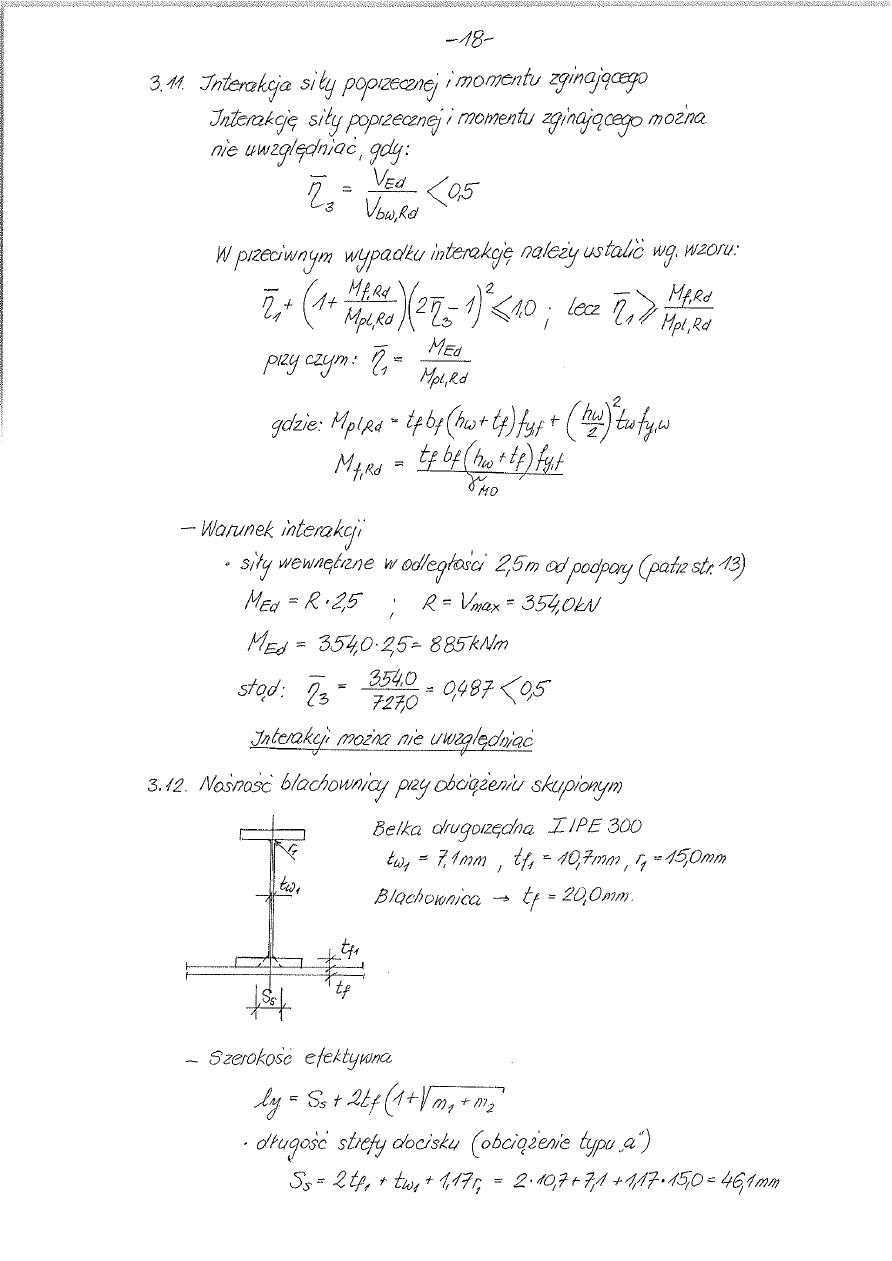 -18-
3.11. Interakcja siły poprzecznej i momentu zginającego
Interakcję siły poprzecznej i momentu zginającego można
nie uwzględniać, gdy:
η̄₃ = V_Ed / V_bw,Rd < 0,5
W przeciwnym wypadku interakcję należy ustalić wg. wzoru:
η̄₁ + (1 + M_f,Rd / M_pl,Rd)(2η̄₃ - 1)² ⩽ 1,0 ; lecz η̄₁ ⩾ M_f,Rd / M_pl,Rd
przy czym: η̄₁ = M_Ed / M_pl,Rd
gdzie: M_pl,Rd = t_f b_f (h_w + t_f) f_y,f + (h_w / 2)² t_w f_y,w
M_f,Rd = t_f b_f (h_w + t_f) f_y,f / γ_M0
- Warunek interakcji
• siły wewnętrzne w odległości 2,5m od podpory (patrz str. 13)
M_Ed = R · 2,5 ; R = V_max = 354,0kN
M_Ed = 354,0 · 2,5 = 885kNm
stąd: η̄₃ = 354,0 / 727,0 = 0,487 < 0,5
Interakcji można nie uwzględniać
3.12. Nośność blachownicy przy obciążeniu skupionym
Belka drugorzędna I IPE 300
r₁
t_w1 = 7,1mm , t_f1 = 10,7mm , r₁ = 15,0mm
t_w1
Blachownica → t_f = 20,0mm.
t_f1
t_f
S_s
- Szerokość efektywna
l_y = S_s + 2t_f (1 + √(m₁ + m₂)
• długość strefy docisku (obciążenie typu „a")
S_s = 2t_f1 + t_w1 + 1,17r₁ = 2 · 10,7 + 7,1 + 1,17 · 15,0 = 46,1mm